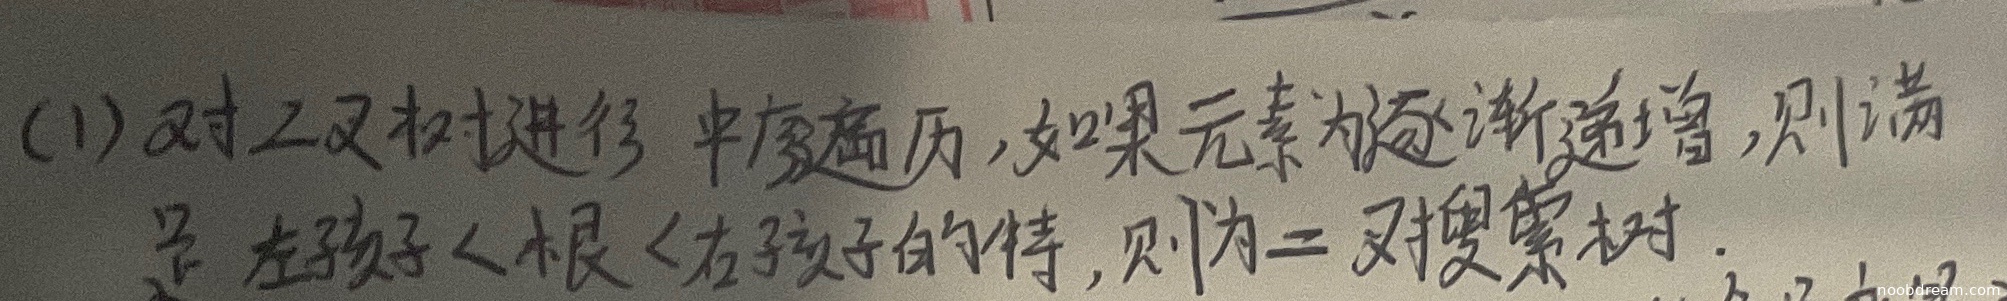 (1) 对二叉树进行 中序遍历,如果元素为逐渐递增,则满
足 左孩子<根<右孩子的特,则为二叉搜索树.
noobdream.com